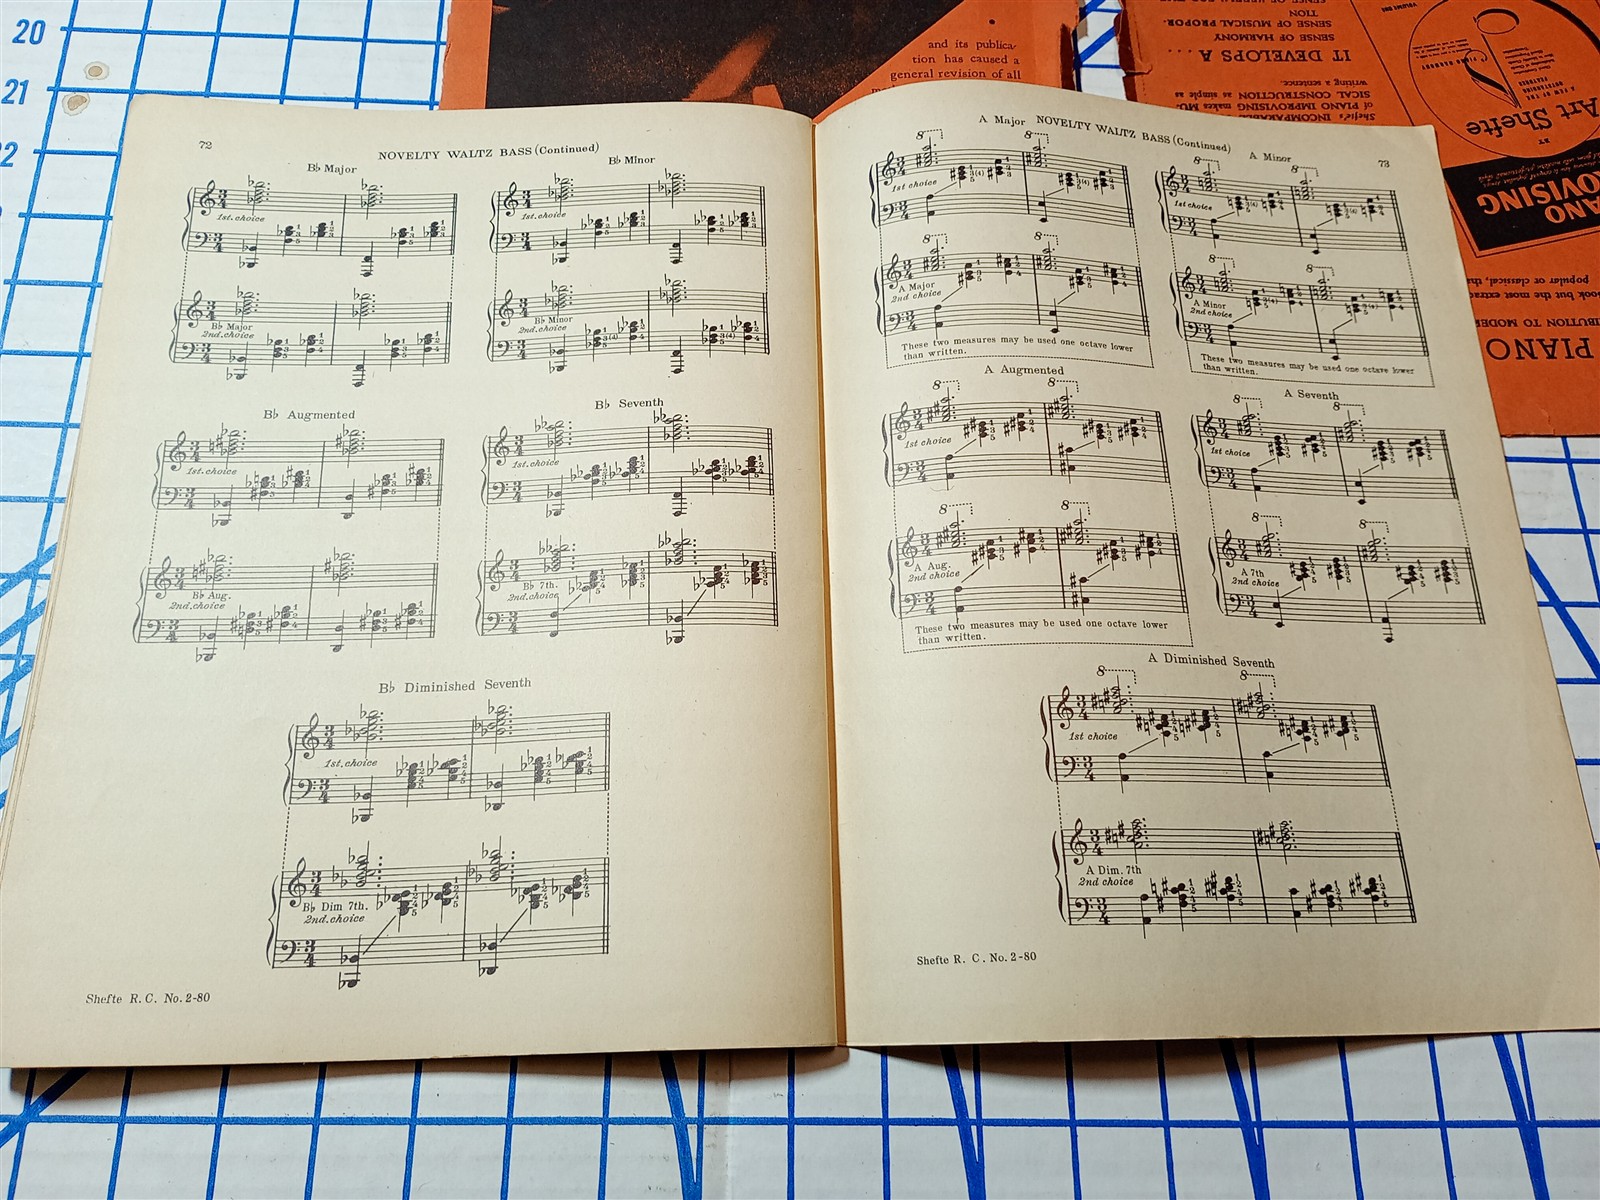 20
21
22
and its publica-
tion has caused a
general revision of all
VOLUME ONE
SENSE OF HARMONY
SENSE OF MUSICAL PROPOR-
TION
IT DEVELOPS A...
writing a sentence.
SICAL CONSTRUCTION as simple as
of PIANO IMPROVISING makes MU-
Shefte's INCOMPARABLE
BY
Art Shefte
popular or classical, tha
ook but the most extrao
IBUTION TO MODER
PIANO
72
NOVELTY WALTZ BASS (Continued)
B♭ Major
B♭ Minor
1st. choice
1st. choice
B♭ Major
2nd. choice
B♭ Minor
2nd. choice
B♭ Augmented
B♭ Seventh
1st. choice
1st. choice
B♭ Aug.
2nd. choice
B♭ 7th.
2nd. choice
B♭ Diminished Seventh
1st. choice
B♭ Dim 7th.
2nd. choice
Shefte R. C. No. 2-80
A Major NOVELTY WALTZ BASS (Continued)
A Minor
73
1st choice
1st choice
A Major
2nd choice
A Minor
2nd choice
These two measures may be used one octave lower
than written.
These two measures may be used one octave lower
than written.
A Augmented
A Seventh
1st choice
1st choice
A Aug.
2nd choice
A 7th
2nd choice
These two measures may be used one octave lower
than written.
A Diminished Seventh
1st choice
A Dim. 7th
2nd choice
Shefte R. C. No. 2-80